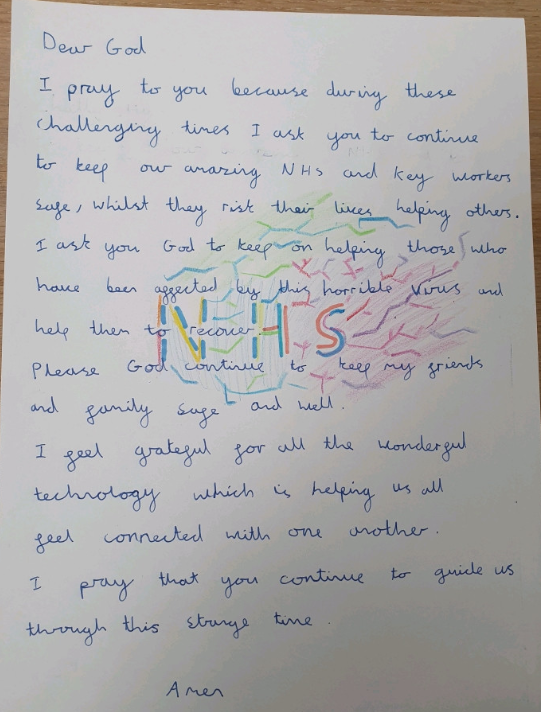 Dear God
I pray to you because during these
challenging times I ask you to continue
to keep our amazing NHS and key workers
safe, whilst they risk their lives helping others.
I ask you God to keep on helping those who
have been affected by this horrible virus and
help them to recover.
NHS
Please God continue to keep my friends
and family safe and well.
I feel grateful for all the wonderful
technology which is helping us all
feel connected with one another.
I pray that you continue to guide us
through this strange time.
Amen